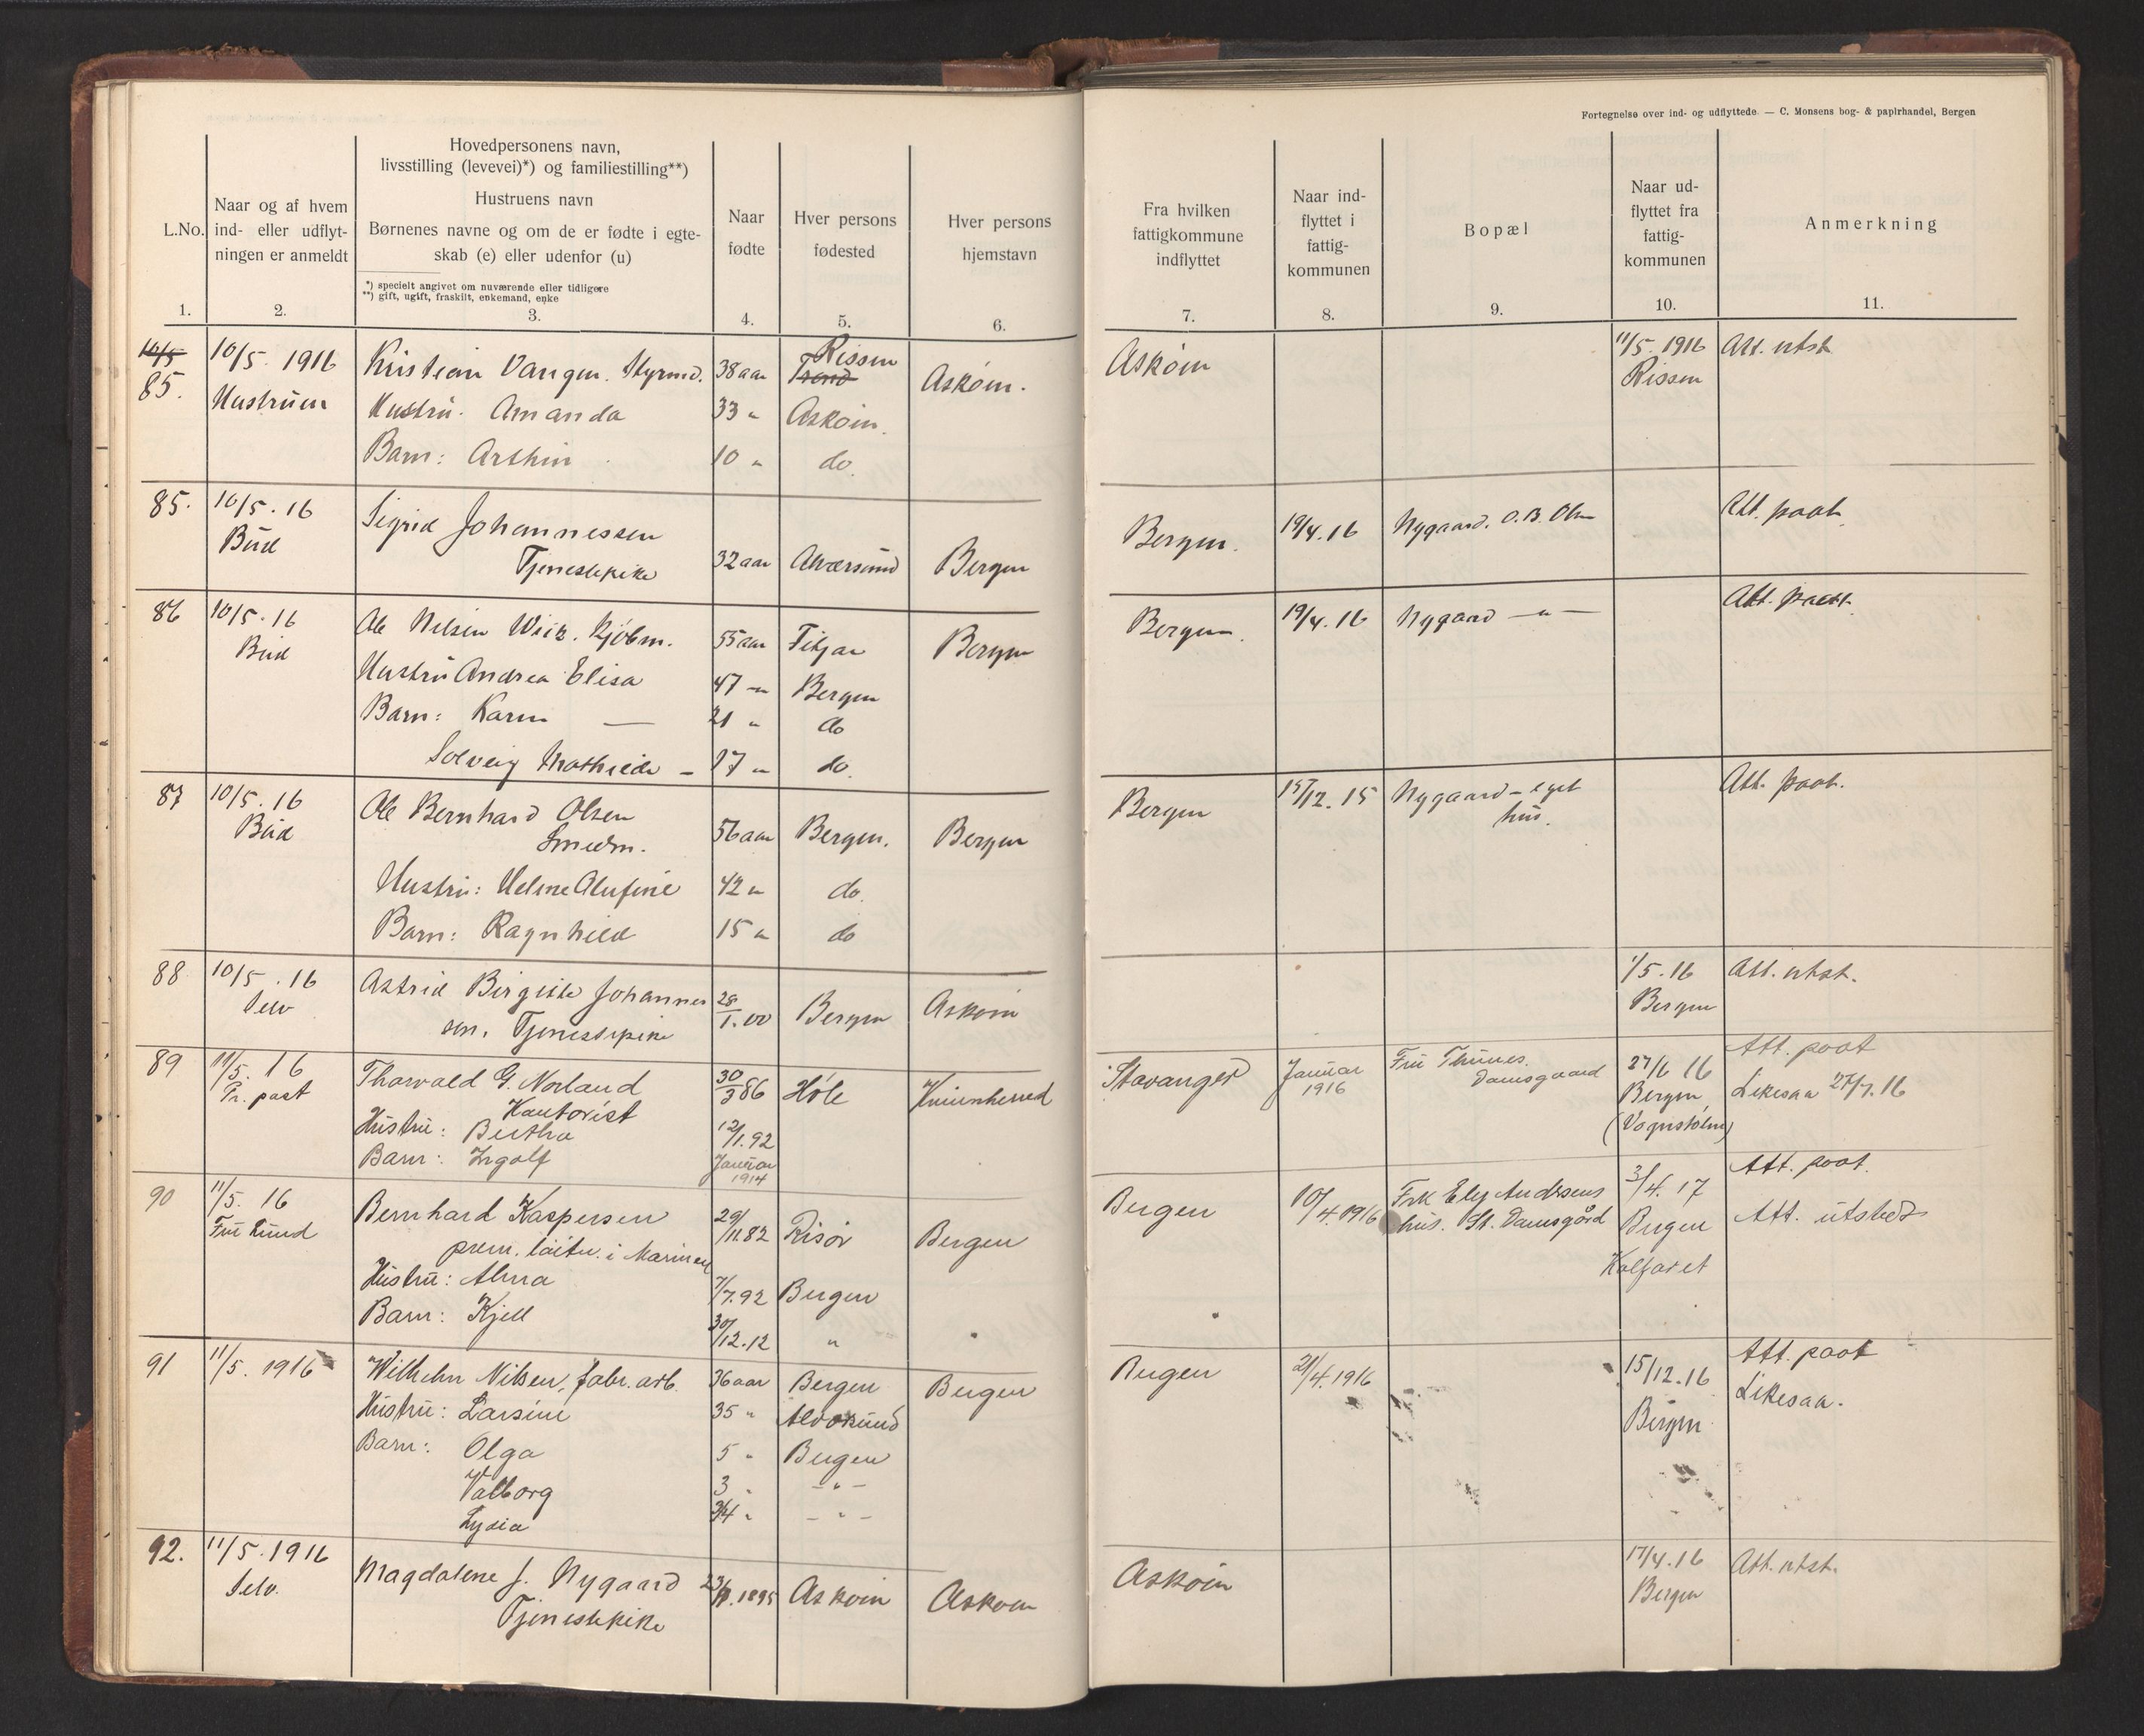 Fortegnelse over ind- og udflyttede — C. Monsens bog- & papirhandel, Bergen
L.No.
1.
Naar og af hvem
ind- eller udflyt-
ningen er anmeldt
2.
Hovedpersonens navn,
livsstilling (levevei)*) og familiestilling**)
Hustruens navn
Børnenes navne og om de er fødte i egte-
skab (e) eller udenfor (u)
*) specielt angivet om nuværende eller tidligere
**) gift, ugift, fraskilt, enkemand, enke
3.
Naar
fødte
4.
Hver persons
fødested
5.
Hver persons
hjemstavn
6.
Fra hvilken
fattigkommune
indflyttet
7.
Naar ind-
flyttet i
fattig-
kommunen
8.
Bopæl
9.
Naar ud-
flyttet fra
fattig-
kommunen
10.
Anmerkning
11.
10/5
85. 10/5. 1916 Kristian Vangen. Styrmd. 38 aar Rissen Askøin. Askøin 11/5. 1916 Att. utst.
Trond Rissen
Hustruen Hustru. Amanda 33 " Askøin.
Barn: Arthur 10 " do.
85. 10/5. 16 Sigrid Johannessen
Bud Tjenestepike 32 aar Alversund Bergen Bergen. 19/4. 16 Nygaard. O. B. Olsen Att. paat.
86 10/5. 16 Ole Nilsen Wiik. Kjøbm. 55 aar Fitjar Bergen Bergen. 19/4. 16 Nygaard — " — Att. paat.
Bud Hustru Andrea Elisa 47 " Bergen
Barn: Karen — 21 " do
Solveig Mathilde — 17 " do.
87 10/5. 16 Ole Bernhard Olsen Bergen 15/12. 15 Nygaard – eget Att. paat.
Bud Smedm. 56 aar Bergen. Bergen hus.
Hustru: Helene Alufine 42 " do.
Barn: Ragnhild 15 " do
88 10/5. 16 Astrid Birgitte Johannes 28/1. 00 Bergen Askøin 1/5. 16 Att. utst.
Selv sen. Tjenestepike Bergen
89 11/5. 16 Thorvald G. Norland 30/3 86 Høle Kvinnherred Stavanger Januar 1916 Fru Thunes. Damsgaard 27/6 16 Att. paat
Pr. post Kontorist Bergen Likesaa 27/7. 16
Hustru: Bertha 12/1. 92 (Vognstølen)
Barn: Ingolf Januar 1914
90 11/5. 16 Bernhard Kaspersen 29/11. 82 Risør Bergen Bergen 10/4. 1916 Frk Andersens 3/4. 17 Att. paat.
Fru Lund prem. løitn. i Marinen hus. St. Damsgård Bergen Att. utsted
Hustru: Alma 7/7. 92 Bergen Kalfaret
Barn: Kjell 30/12. 12 "
91 11/5. 1916 Wilhelm Nilsen, fabr. arb. 36 aar Bergen Bergen Bergen 21/4. 1916 15/12. 16 Att. paat
Hustru: Larsine 35 " Bergen Likesaa.
Barn: Olga 5 " Bergen
Valborg 3 " – " –
Lydia 3/4 " – " –
92. 11/5. 1916 Magdalene J. Nygaard 1895 Askøin Askøen Askøin 17/4. 16 Att. utst.
Selv. Tjenestepike Bergen